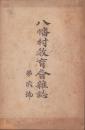 八幡村教育會雜誌
第貳編